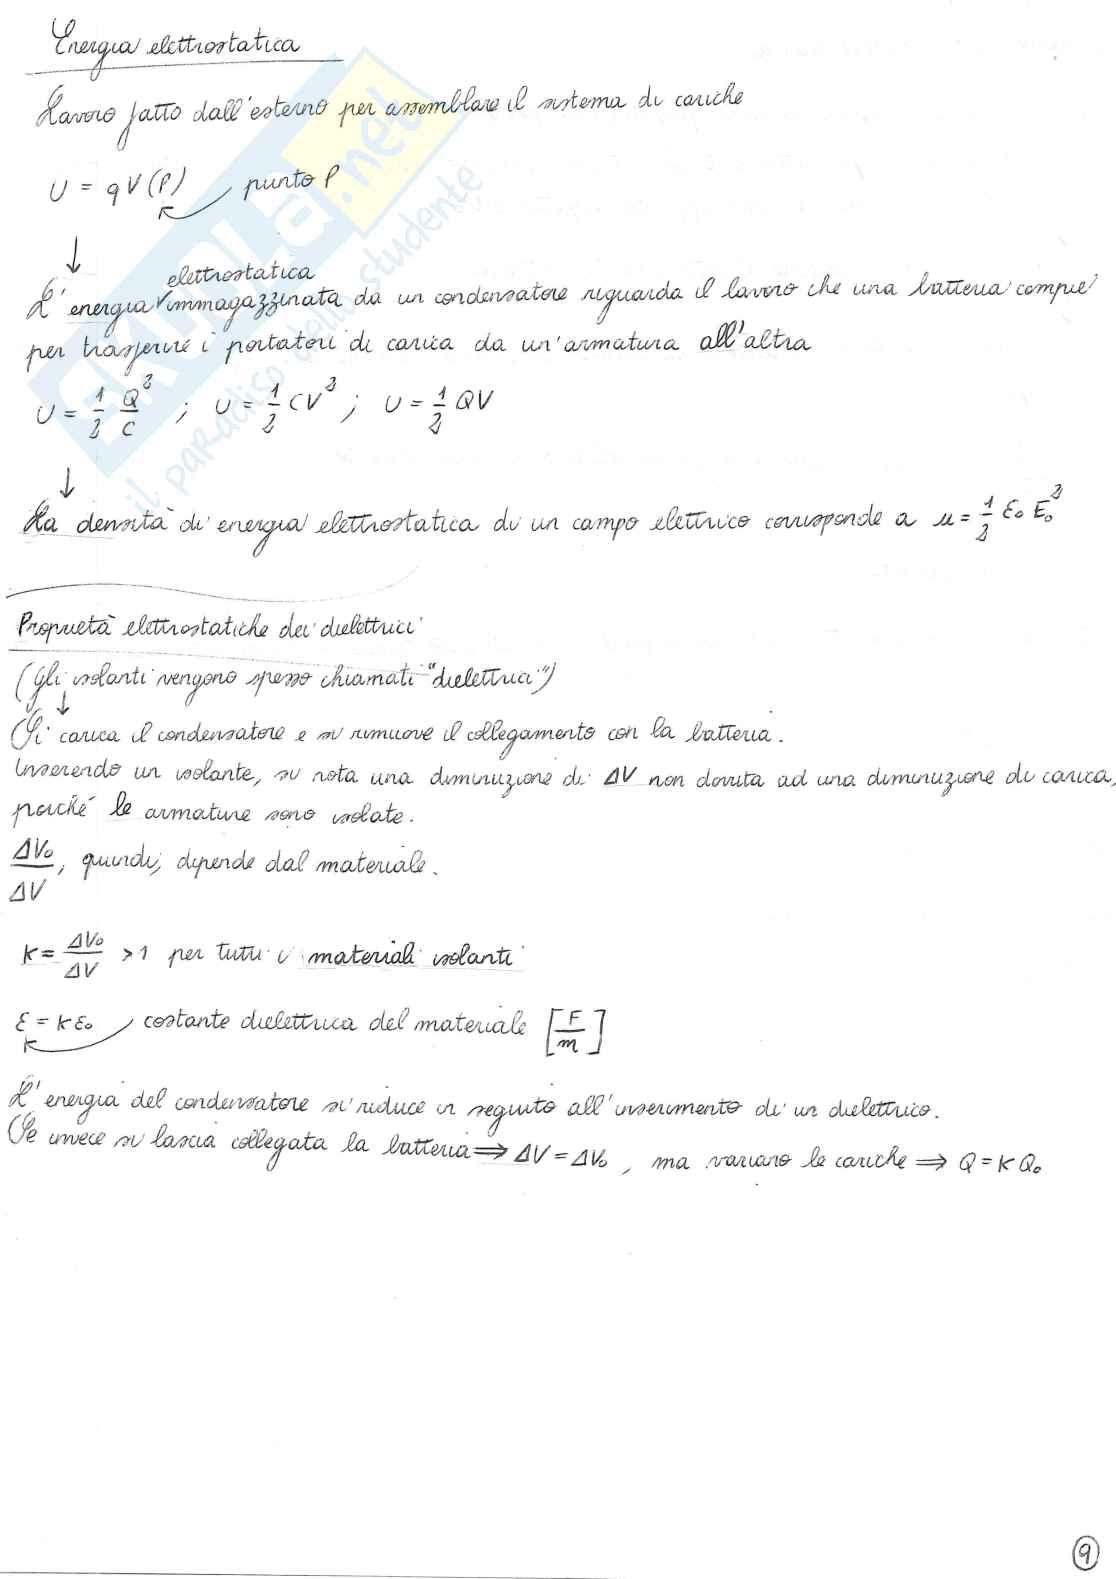 Energia elettrostatica
Lavoro fatto dall'esterno per assemblare il sistema di cariche
U = qV(P) punto P
elettrostatica
L'energia immagazzinata da un condensatore riguarda il lavoro che una batteria compie
per trasferire i portatori di carica da un'armatura all'altra
U = 1/2 Q²/C ; U = 1/2 CV² ; U = 1/2 QV
La densità di energia elettrostatica di un campo elettrico corrisponde a u = 1/2 ε₀ E₀²
Proprietà elettrostatiche dei dielettrici
(Gli isolanti vengono spesso chiamati "dielettrici")
Si carica il condensatore e si rimuove il collegamento con la batteria.
Inserendo un isolante, si nota una diminuzione di ΔV non dovuta ad una diminuzione di carica,
poiché le armature sono isolate.
ΔV₀/ΔV, quindi, dipende dal materiale.
K = ΔV₀/ΔV >1 per tutti i materiali isolanti
ε = K ε₀ costante dielettrica del materiale [F/m]
L'energia del condensatore si riduce in seguito all'inserimento di un dielettrico.
Se invece si lascia collegata la batteria ⇒ ΔV = ΔV₀, ma variano le cariche ⇒ Q = K Q₀
9
SKUOLA.net
il paradiso dello studente